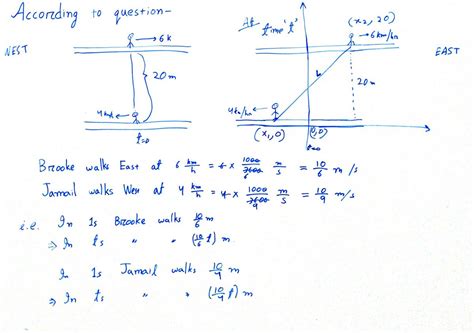 According to question-
At time 't'
(x₂, 20)
→6k
→6km/hr
NEST
EAST
20m
20m
4km/hr
t=0
(x₁,0)
(0,0)
t=0
Brooke walks East at 6 km/h = 6 x 1000/3600 m/s = 10/6 m/s
Jamail walks West at 4 km/h = 4 x 1000/3600 9 m/s = 10/9 m/s
i.e. In 1s Brooke walks 10/6 m
⇒ In ts " " (10/6 t) m
In 1s Jamail walks 10/9 m
⇒ In ts " " (10/9 t) m